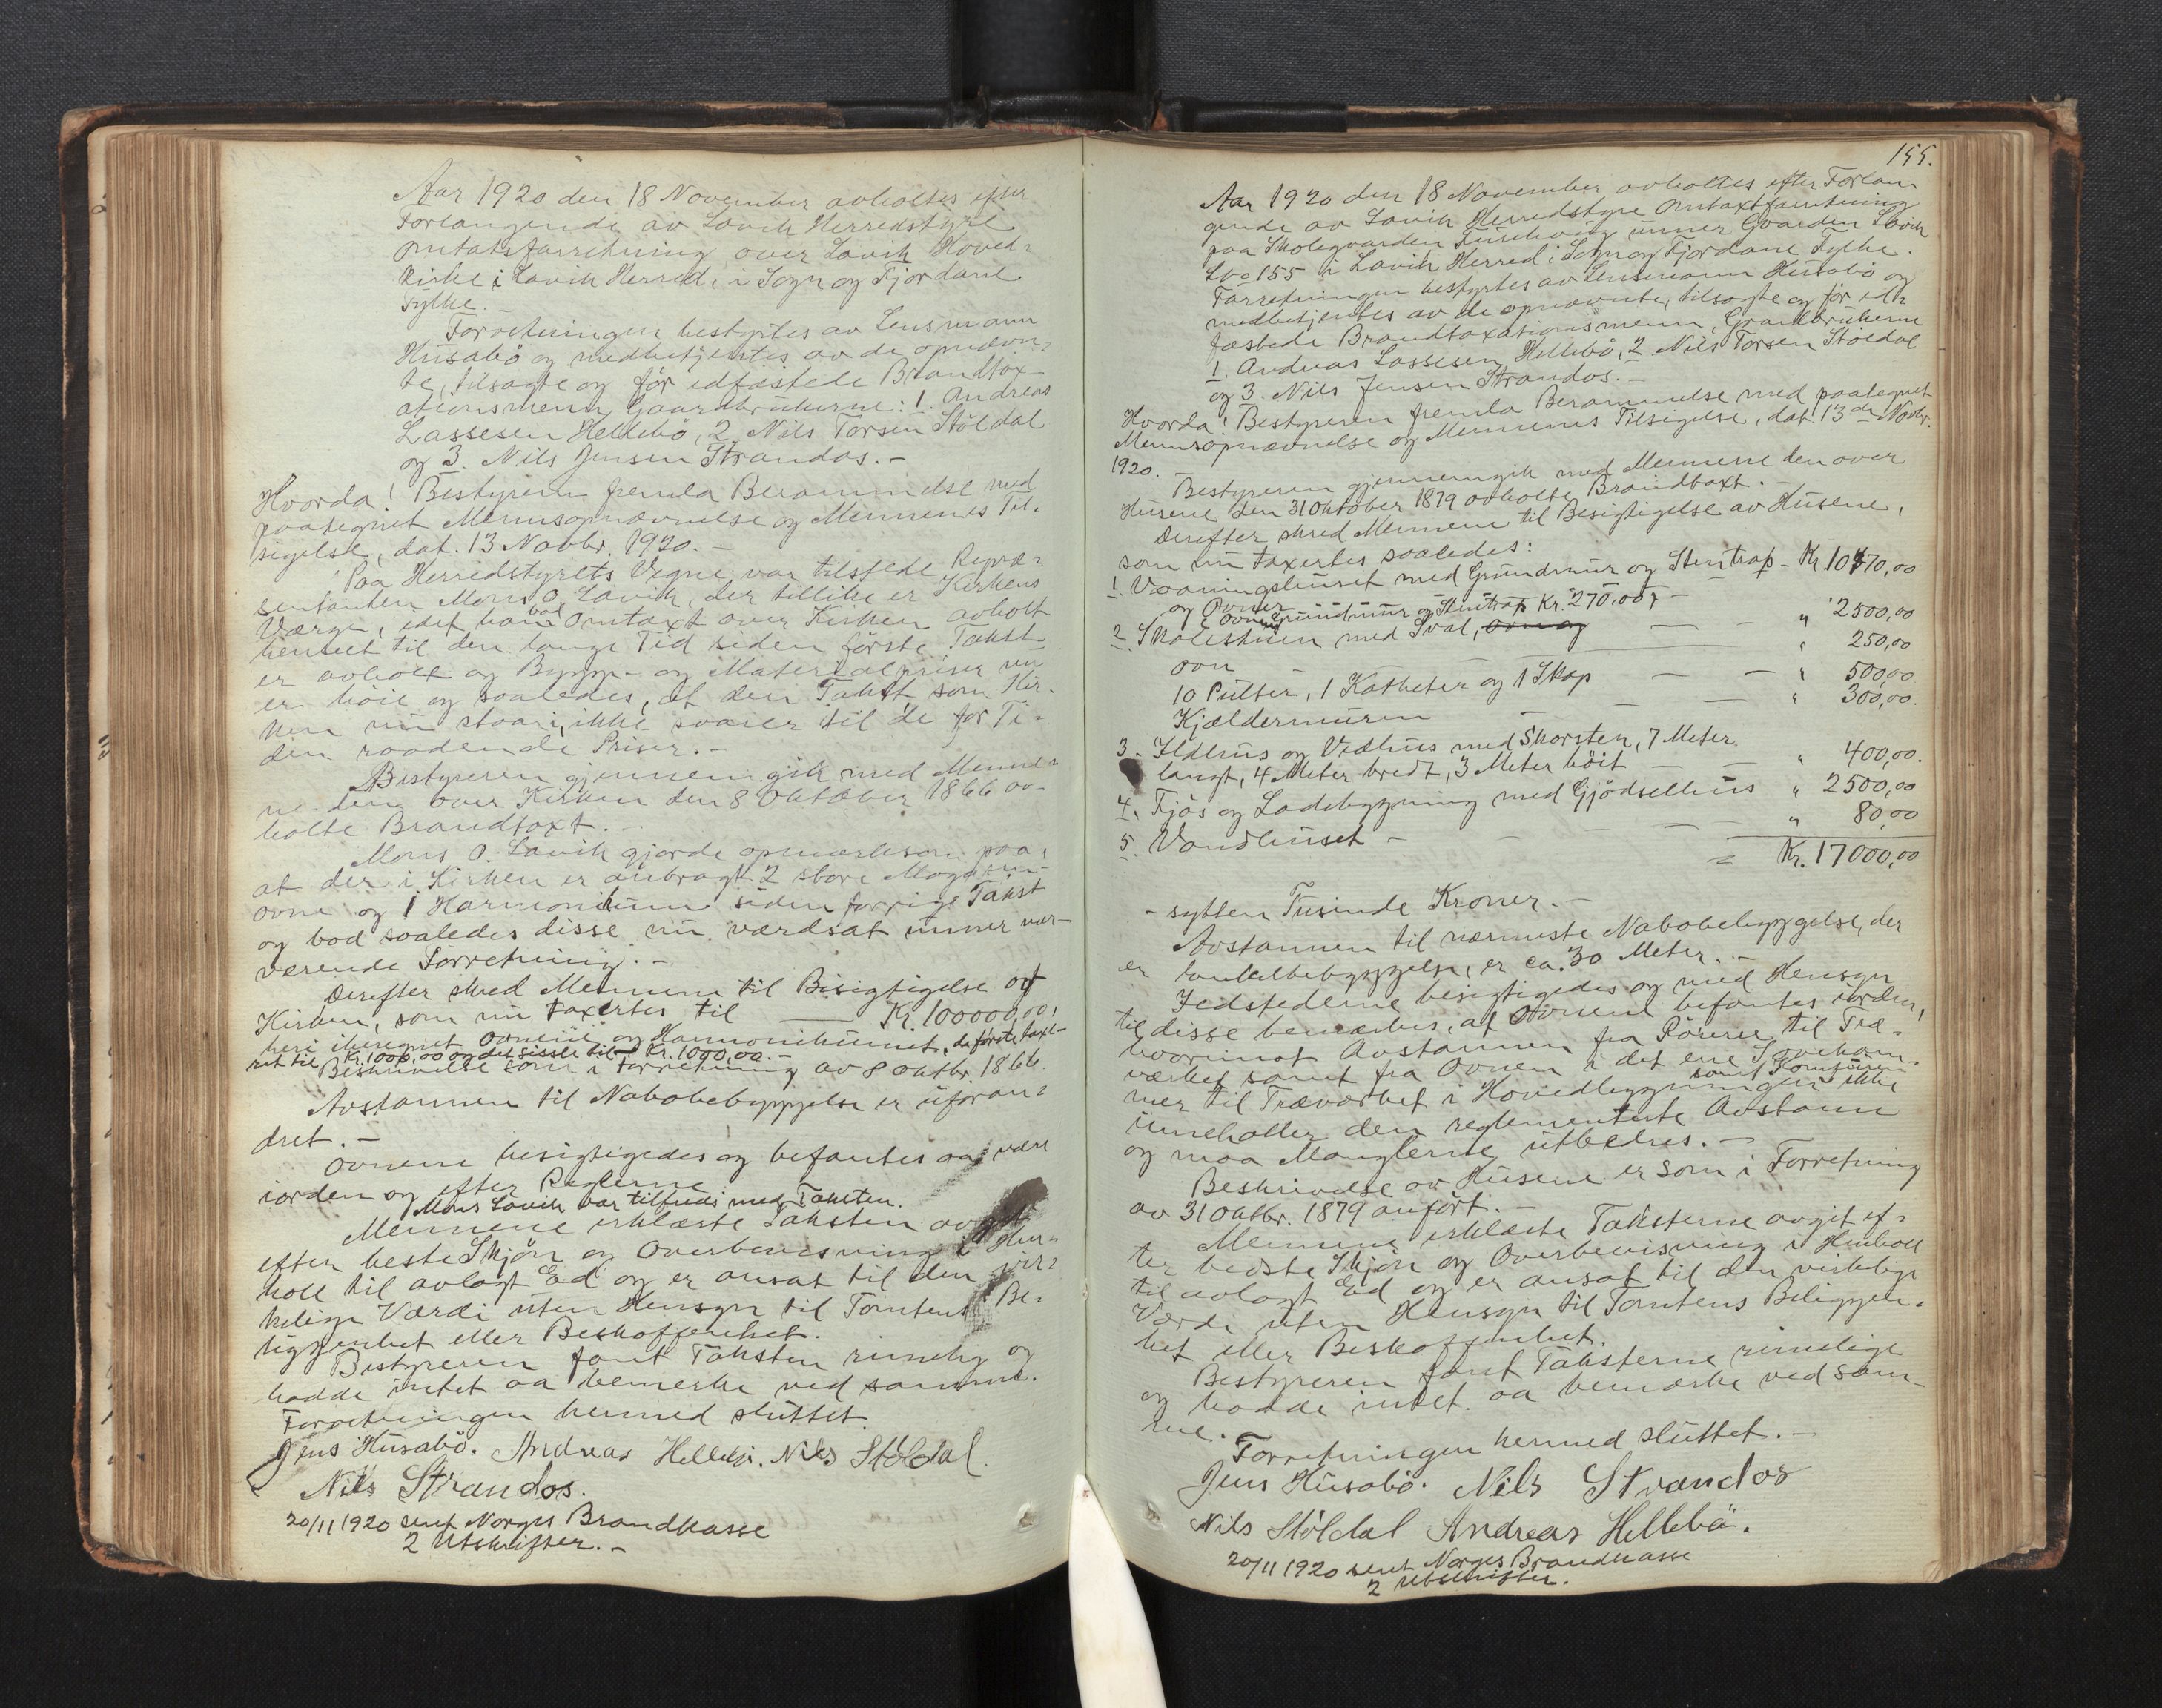 Aar 1920 den 18 November avholtes efter
Forlangende av Lavik Herredstyre
omtaksforretning over Lavik Hoved-
kirke i Lavik Herred, i Sogn og Fjordane
Fylke.
Forretningen bestyrtes av Lensmann
Husabö og medbetjentes av de opnævn-
te, tilsagte og før edfæstede Brandtax-
ationsmenn, Gaardbrukerne: 1. Andreas
Lassesen Hellebö, 2. Nils Torsen Stöldal
og 3. Nils Jensen Strandos. -
Hvorda! Bestyreren fremla Berammelse med
paategnet Mennsopnævnelse og Mennenes Til-
sigelse, dat. 13 Novbr. 1920. -
Paa Herredstyrets Vegne var tilstede Repræ-
sentanten Mons O. Lavik, der tillike er Kirkens
Værge, idet han bad Omtaxt over Kirken avholt
henseet til den lange Tid siden første Takst
er avholt og Bygge- og Materialpriser nu
er høie og saaledes, at den Takst som Kir-
ken nu staar i, ikke svarer til de for Ti-
den raadende Priser. -
Bestyreren gjennemgik med Mennde-
ne den over Kirken den 8 Oktober 1866 av-
holte Brandtaxt. -
Mons O. Lavik gjorde opmerksom paa,
at der i Kirken er anbragt 2 store Magasin-
ovne og 1 Harmonikum siden forrige Takst
og bad saaledes disse nu værdsat unner nær-
værende Forretning. -
Derefter skred Mennene til Besigtigelse av
Kirken, som nu taxertes til Kr. 100000,00,
heri iberegnet Ovnene og Harmonikumet, de første taxe-
ret til Kr. 1000,00 og det sisste til Kr. 1000,00. -
Beskrivelse som i Forretning av 8 Oktbr. 1866.
Avstannen til Nabobebyggelse er uforan-
dret. -
Ovnene besigtigedes og befantes aa være
iorden og efter Reglerne.
Mons Lavik var tilfreds med Taksten.
Mennene erklærte Taksten avgit
efter beste Skjön og Overbevisning i Hen-
hold til avlagt Ed og er ansat til den vir-
kelige Værdi uten Hensyn til Tomtens Be-
liggenhet eller Beskaffenhet.
Bestyreren fant Taksten rimelig og
hadde intet aa bemerke ved samme.
Forretningen hermed sluttet.
Jens Husabö. Andreas Hellebö. Nils Stöldal.
Nils Strandos.
20/11 1920 sent Norges Brandkasse
2 Utskrifter. -
155.
Aar 1920 den 18 November avholtes efter Forlan-
gende av Lavik Herredstyre Omtaxtforretning
paa Skolegaarden Furehaug unner Gaarden Lavik
Lb.№ 155 i Lavik Herred i Sogn og Fjordane Fylke.
Forretningen bestyrtes av Lensmann Husabö og
medbetjentes av de opnævnte, tilsagte og før ed-
fæstede Brandtaxationsmenn, Gaardbrukerne
1. Andreas Lassesen Hellebö, 2 Nils Torsen Stöldal
og 3. Nils Jensen Strandos. -
Hvorda! Bestyreren fremla Berammelse med paategnet
Mennsopnævnelse og Mennenes Tilsigelse, dat. 13de Novbr.
1920. -
Bestyreren gjennemgik med Mennene den over
Husene den 31 Oktober 1879 avholte Brandtaxt. -
Derefter skred Mennene til Besigtigelse av Husene,
som nu taxertes saaledes:
1 Vaaningshuset med Grundmur og Stentrap - Kr. 10470,00
og Ovner
2. Skolestuen med Sval, Ovn og Grundmur og Stentrap Kr. 270,00, - " 2500,00
ovn " 250,00
10 Pulter, 1 Katheter og 1 Skap " 500,00
Kjældermuren " 300,00.
3. Ildhus og Vedhus med Skorsten, 7 Meter
langt, 4 Meter bredt, 3 Meter höit " 400,00.
4. Fjös og Ladebygning med Gjödselhus " 2500,00
5. Vandhuset - " 80,00
= Kr. 17000,00
- sytten Tusinde Kroner. -
Avstannen til nærmeste Nabobebyggelse, der
er bebyggelse, er ca. 30 Meter. -
Ildstederne besigtigedes og med Hensyn
til disse bemærkes, at Ovnene befantes iorden,
hvorimot Avstannen fra Rörene til Træ-
værket samt fra Ovnen i det ene Sovekam-
mer til Træværket i Hovedbygningen samt Komfuren ikke
inneholler den reglementerte Avstann
og maa Manglerne utbedres. -
Beskrivelse av Husene er som i Forretning
av 31 Oktbr. 1879 anført. -
Mennene erklærte Taksterne avgit ef-
ter bedste Skjön og Overbevisning i Henhold
til avlagt Ed og er ansat til den virkelige
Værdi uten Hensyn til Tomtens Beliggen-
het eller Beskaffenhet.
Bestyreren fant Taksterne rimelige
og hadde intet aa bemærke ved sam-
me. -
Forretningen hermed sluttet. -
Jens Husabö. Nils Strandos
Nils Stöldal Andreas Hellebö.
20/11 1920 sent Norges Brandkasse
2 Utskrifter.